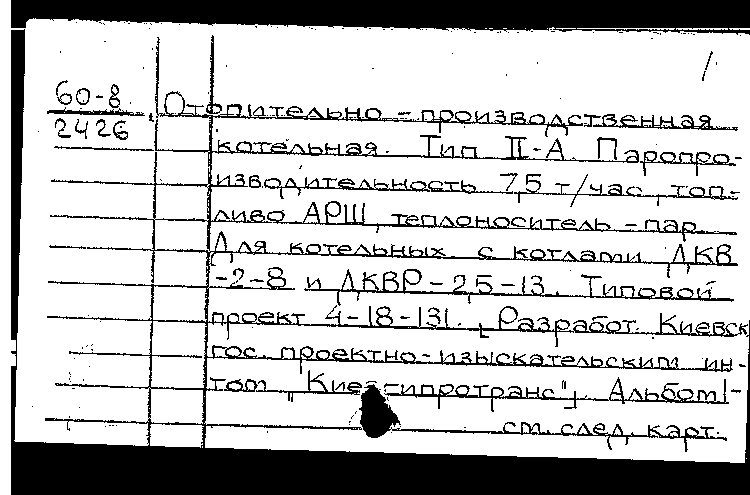 1
60-8
2426
Отопительно-производственная
котельная. Тип II-А. Паропро-
изводительность 7,5 т/час, топ-
ливо АРШ, теплоноситель - пар.
Для котельных с котлами ДКВ
-2-8 и ДКВР-2,5-13. Типовой
проект 4-18-131. [Разработ. Киевск
гос. проектно-изыскательским ин-
том „Киевгипротранс"]. Альбом I-
см. след. карт.